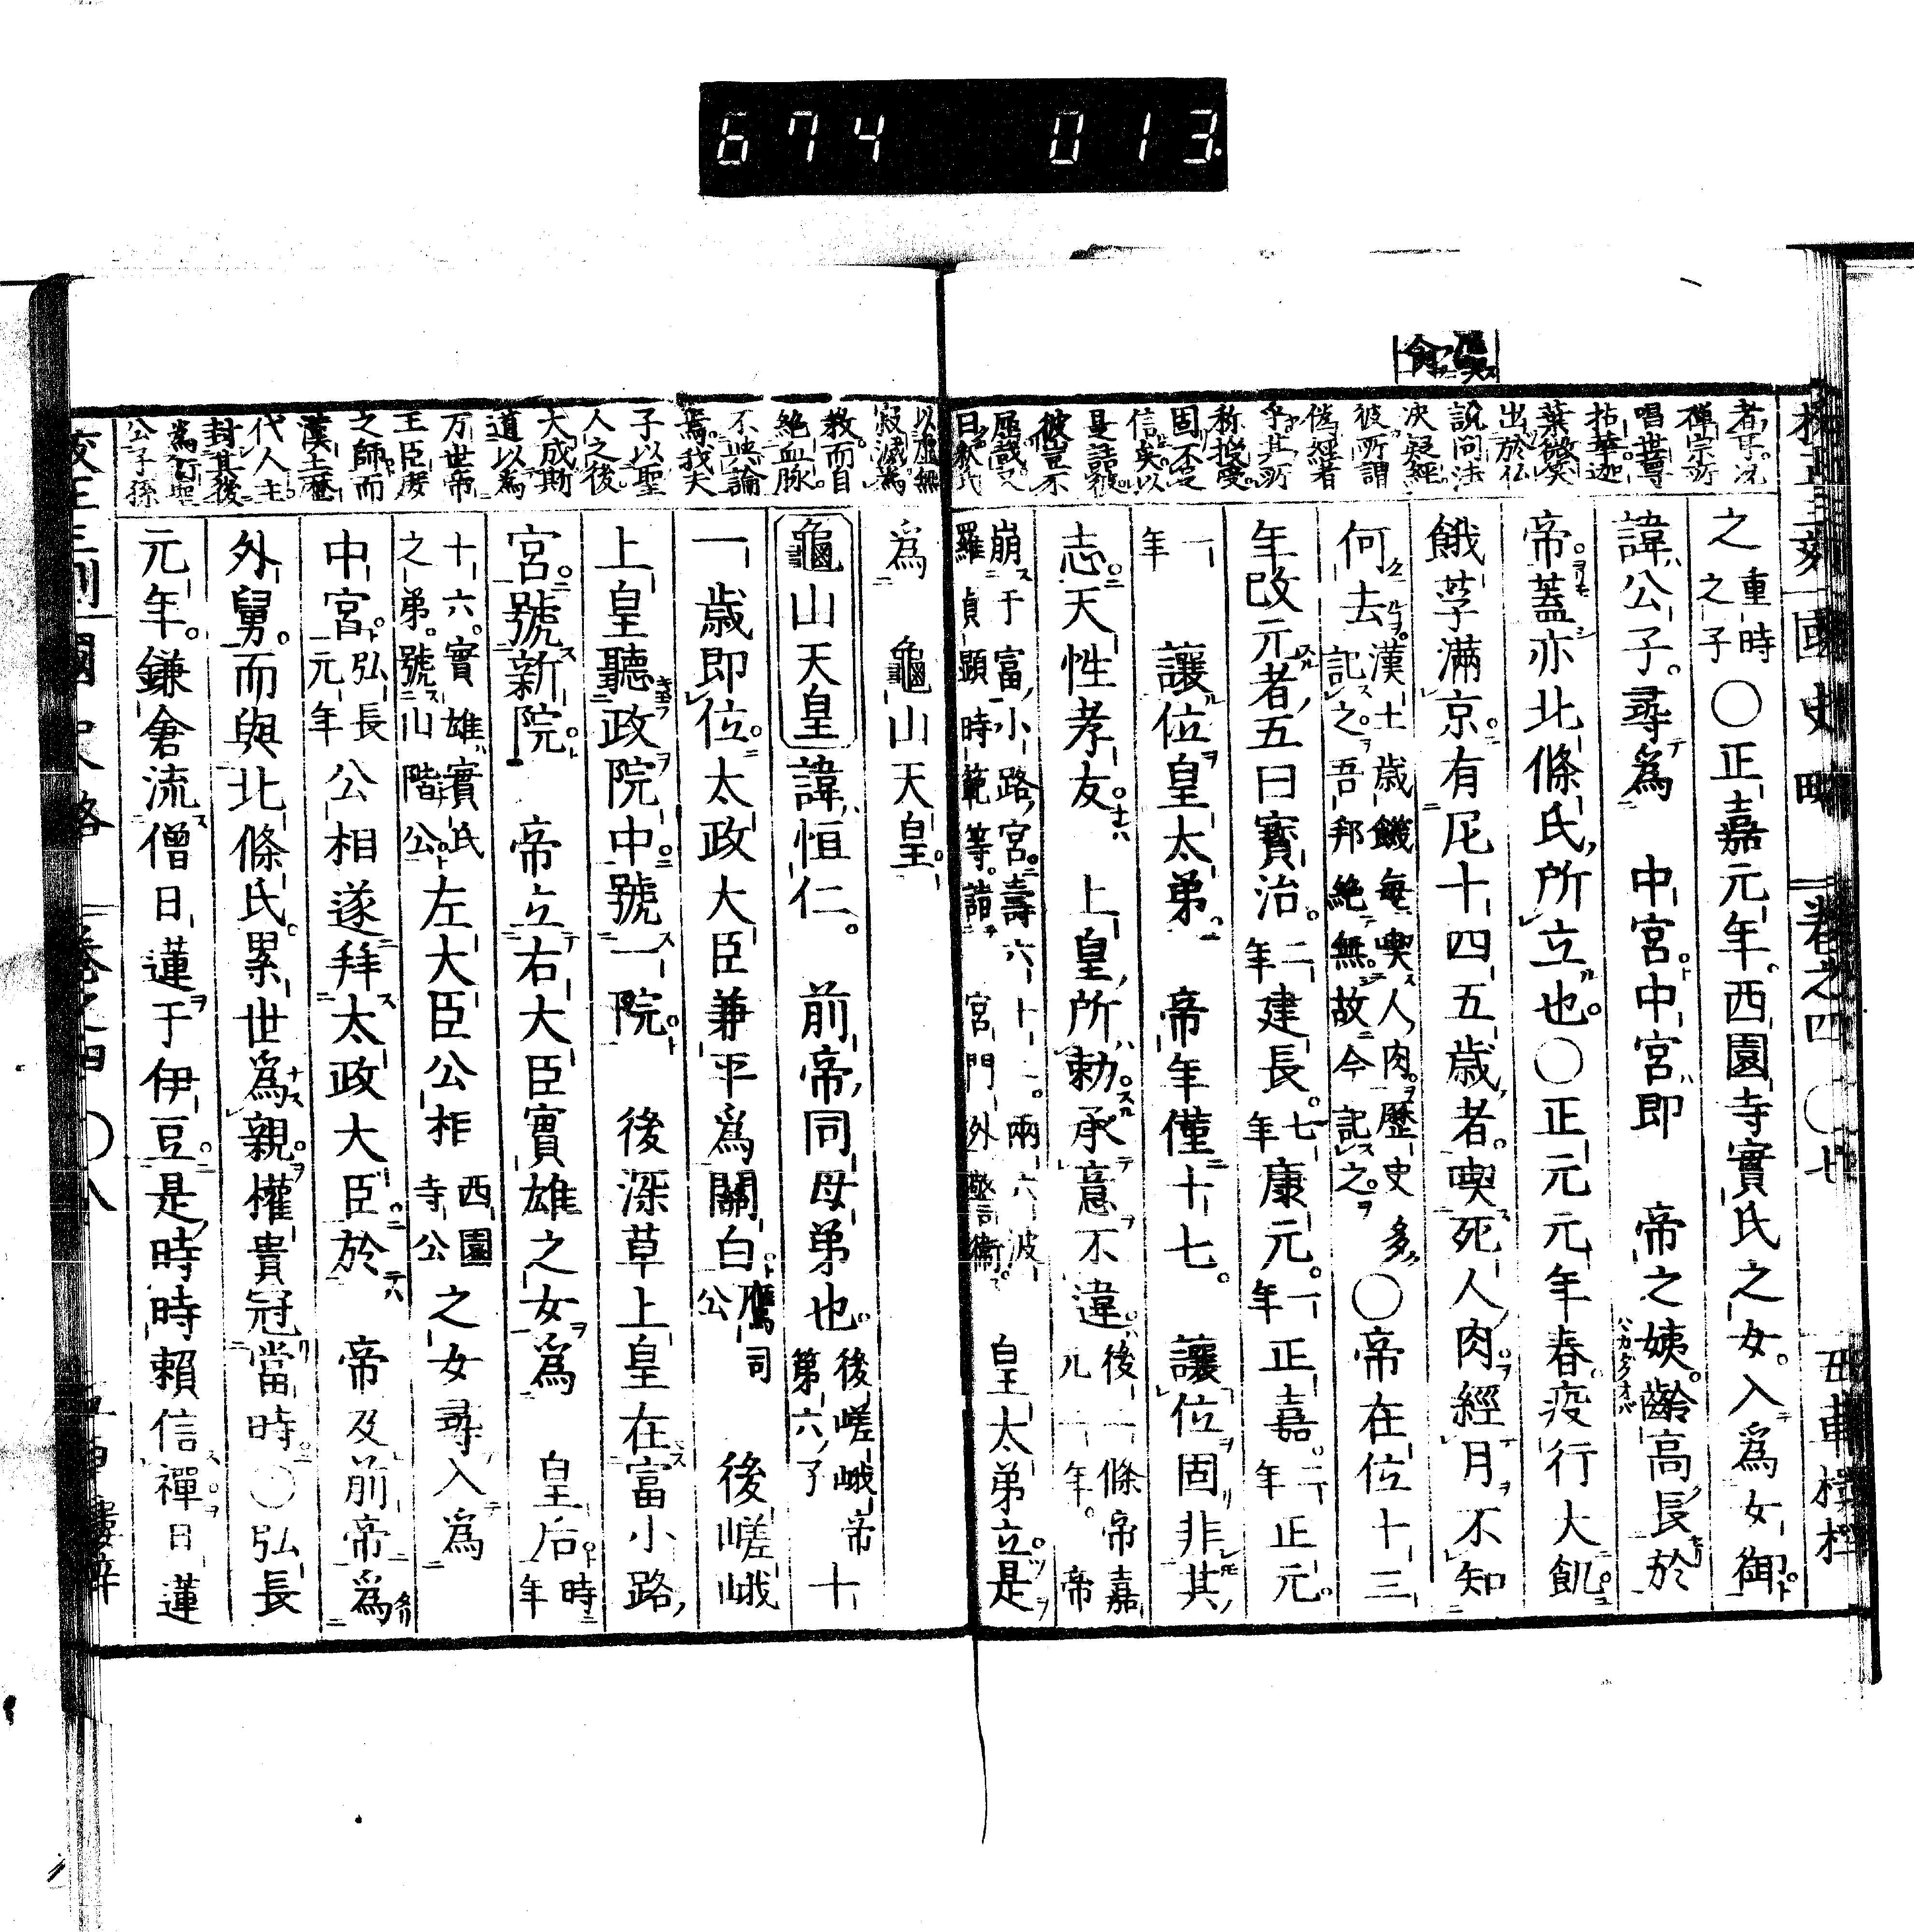 674 013
校正三刻 國史略 卷之四 〇七 五車樓梓
者耳。况
禪宗所
唱世尊
拈華迦
葉微笑
出於仏
説問法
決疑經
彼所謂
偽經者
乎其所
称授受
固不足
信矣以
是詰彼
彼豈不
屈哉又
曰釈氏
之重時之子〇正嘉元年。西園寺實氏之女。入爲女御
諱公子。尋爲 中宮中宮即 帝之姨。齡高長於
帝。蓋亦北條氏所立也。〇正元元年春。疫行大飢
餓莩滿京。有尼十四五歳者。喫死人肉。經月不知
何去。漢土歳饑每喫人肉。歷史多記之。吾邦絶無。故今記之。〇帝在位十三
年改元者五曰寶治。二年建長。七年康元。一年正嘉。二年正元。
一年 讓位皇太弟。 帝年僅十七。 讓位固非其
志。天性孝友。 上皇所勅承意不違。後一條帝嘉元一年。帝
崩于富小路宮。壽六十二。兩六波羅貞顯時範等。詣宮門外警衞。 皇太弟立。是
以虛無
寂滅爲
教。而自
絶血脉。
不與論
焉。我夫
子以聖
人之後
大成斯
道以爲
万世帝
王臣庶
之師而
漢土歷
代人主。
封其後
爲
公子孫
爲 龜山天皇。
龜山天皇諱恒仁。 前帝同母弟也。後嵯峨帝第六子 十
一歳即位。太政大臣兼平爲關白鷹司公 後嵯峨
上皇聽政院中。號一院 後深草上皇在富小路
宮。號新院。 帝立右大臣實雄之女爲 皇后時年
十六。實雄實氏之弟。號山階公 左大臣公相西園寺公之女尋入爲
中宮。弘長元年公相遂拜太政大臣。於 帝及前帝爲
外舅。而與北條氏累世爲親。權貴冠當時〇弘長
元年。鎌倉流僧日蓮于伊豆。是時時賴信禪日蓮
校正三刻 國史略 卷之四 〇八 五車樓梓